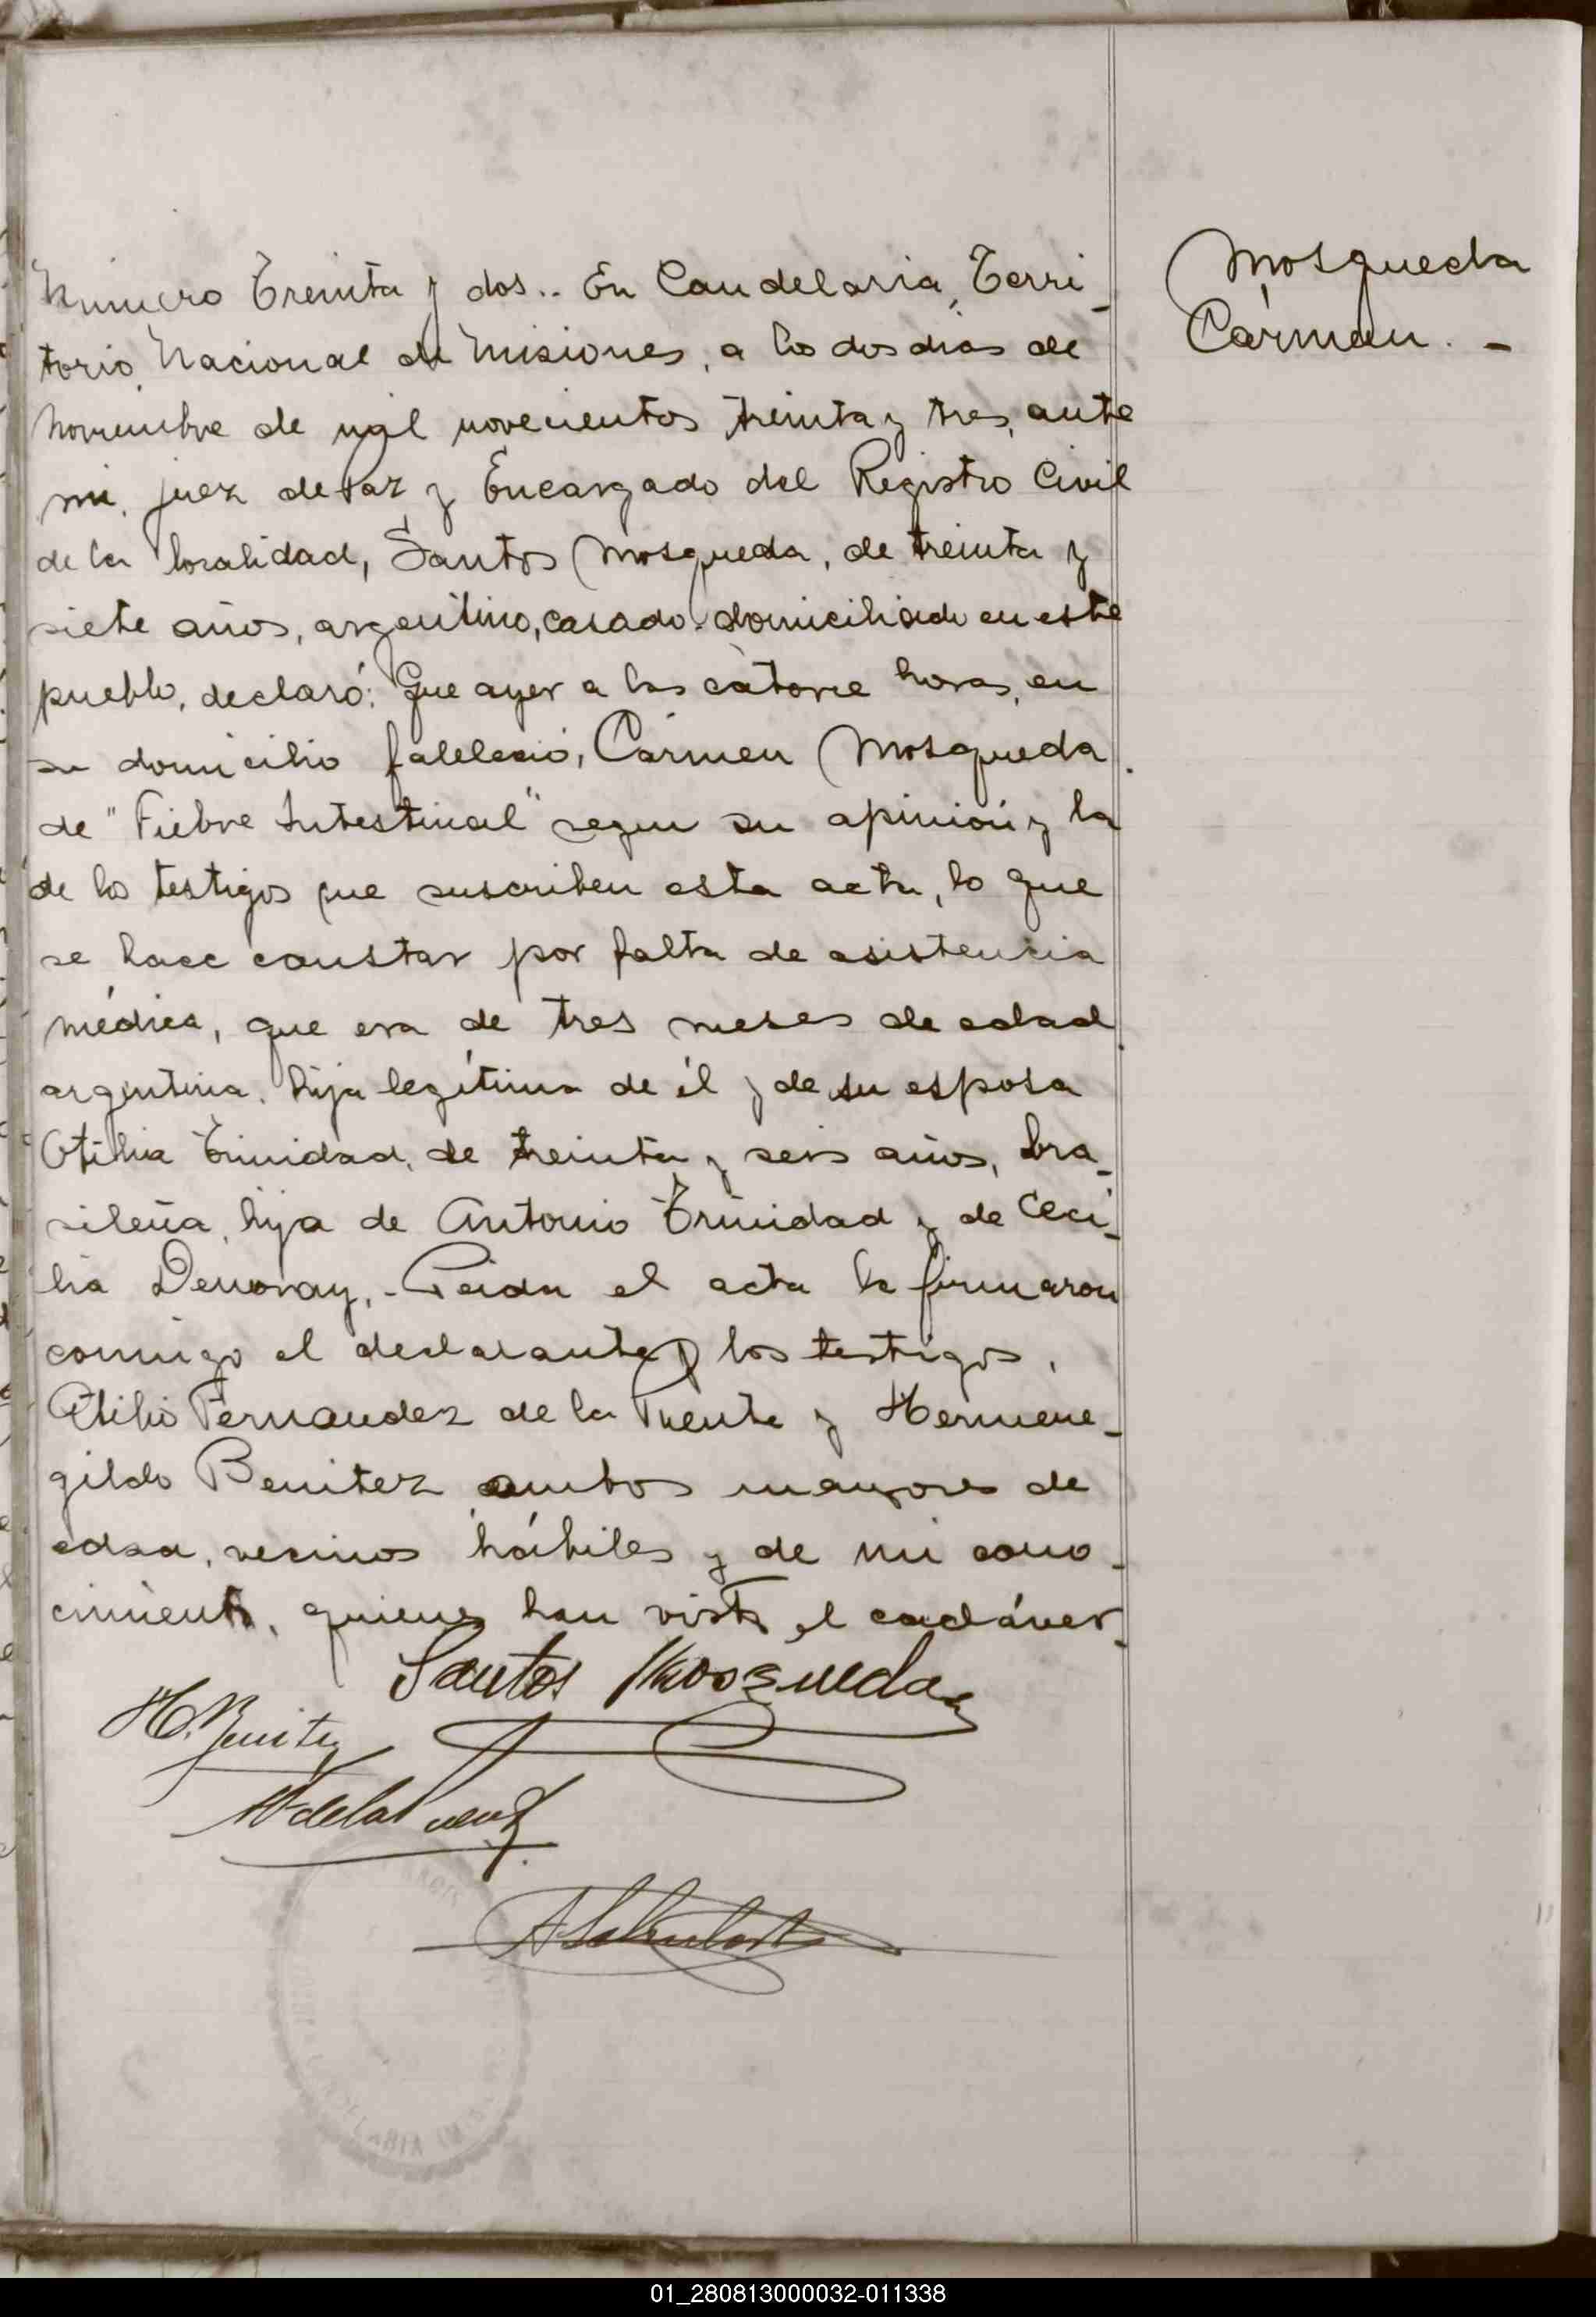 Número Treinta y dos.. En Candelaria, Terri-
torio Nacional de Misiones, a los dos dias de
noviembre de mil novecientos treinta y tres, ante
mi, juez de Paz y Encargado del Registro Civil
de la localidad, Santos Mosqueda, de treinta y
siete años, argentino, casado. domiciliado en este
pueblo, declaró: Que ayer a las catorce horas, en
su domicilio falleció, Cármen Mosqueda.
de "Fiebre Intestinal" segun su opinión y la
de los testigos que suscriben esta acta, lo que
se hace constar por falta de asistencia
médica, que era de tres meses de edad.
argentina, hija legítima de él y de su esposa
Otilia Trinidad, de treinta y seis años, bra-
sileña, hija de Antonio Trinidad y de Ceci-
lia . - Leida el acta la firmaron
comigo el declarante y los testigos,
Atilio Fernandez de la Puente y Hermene-
gildo Benitez ambos mayores de
edad, vecinos hábiles y de mi cono-
cimiento, quienes han visto el cadáver.
Santos Mosqueda
H. Benitez
de la Puente
Mosqueda
Cármen. -
01_280813000032-011338